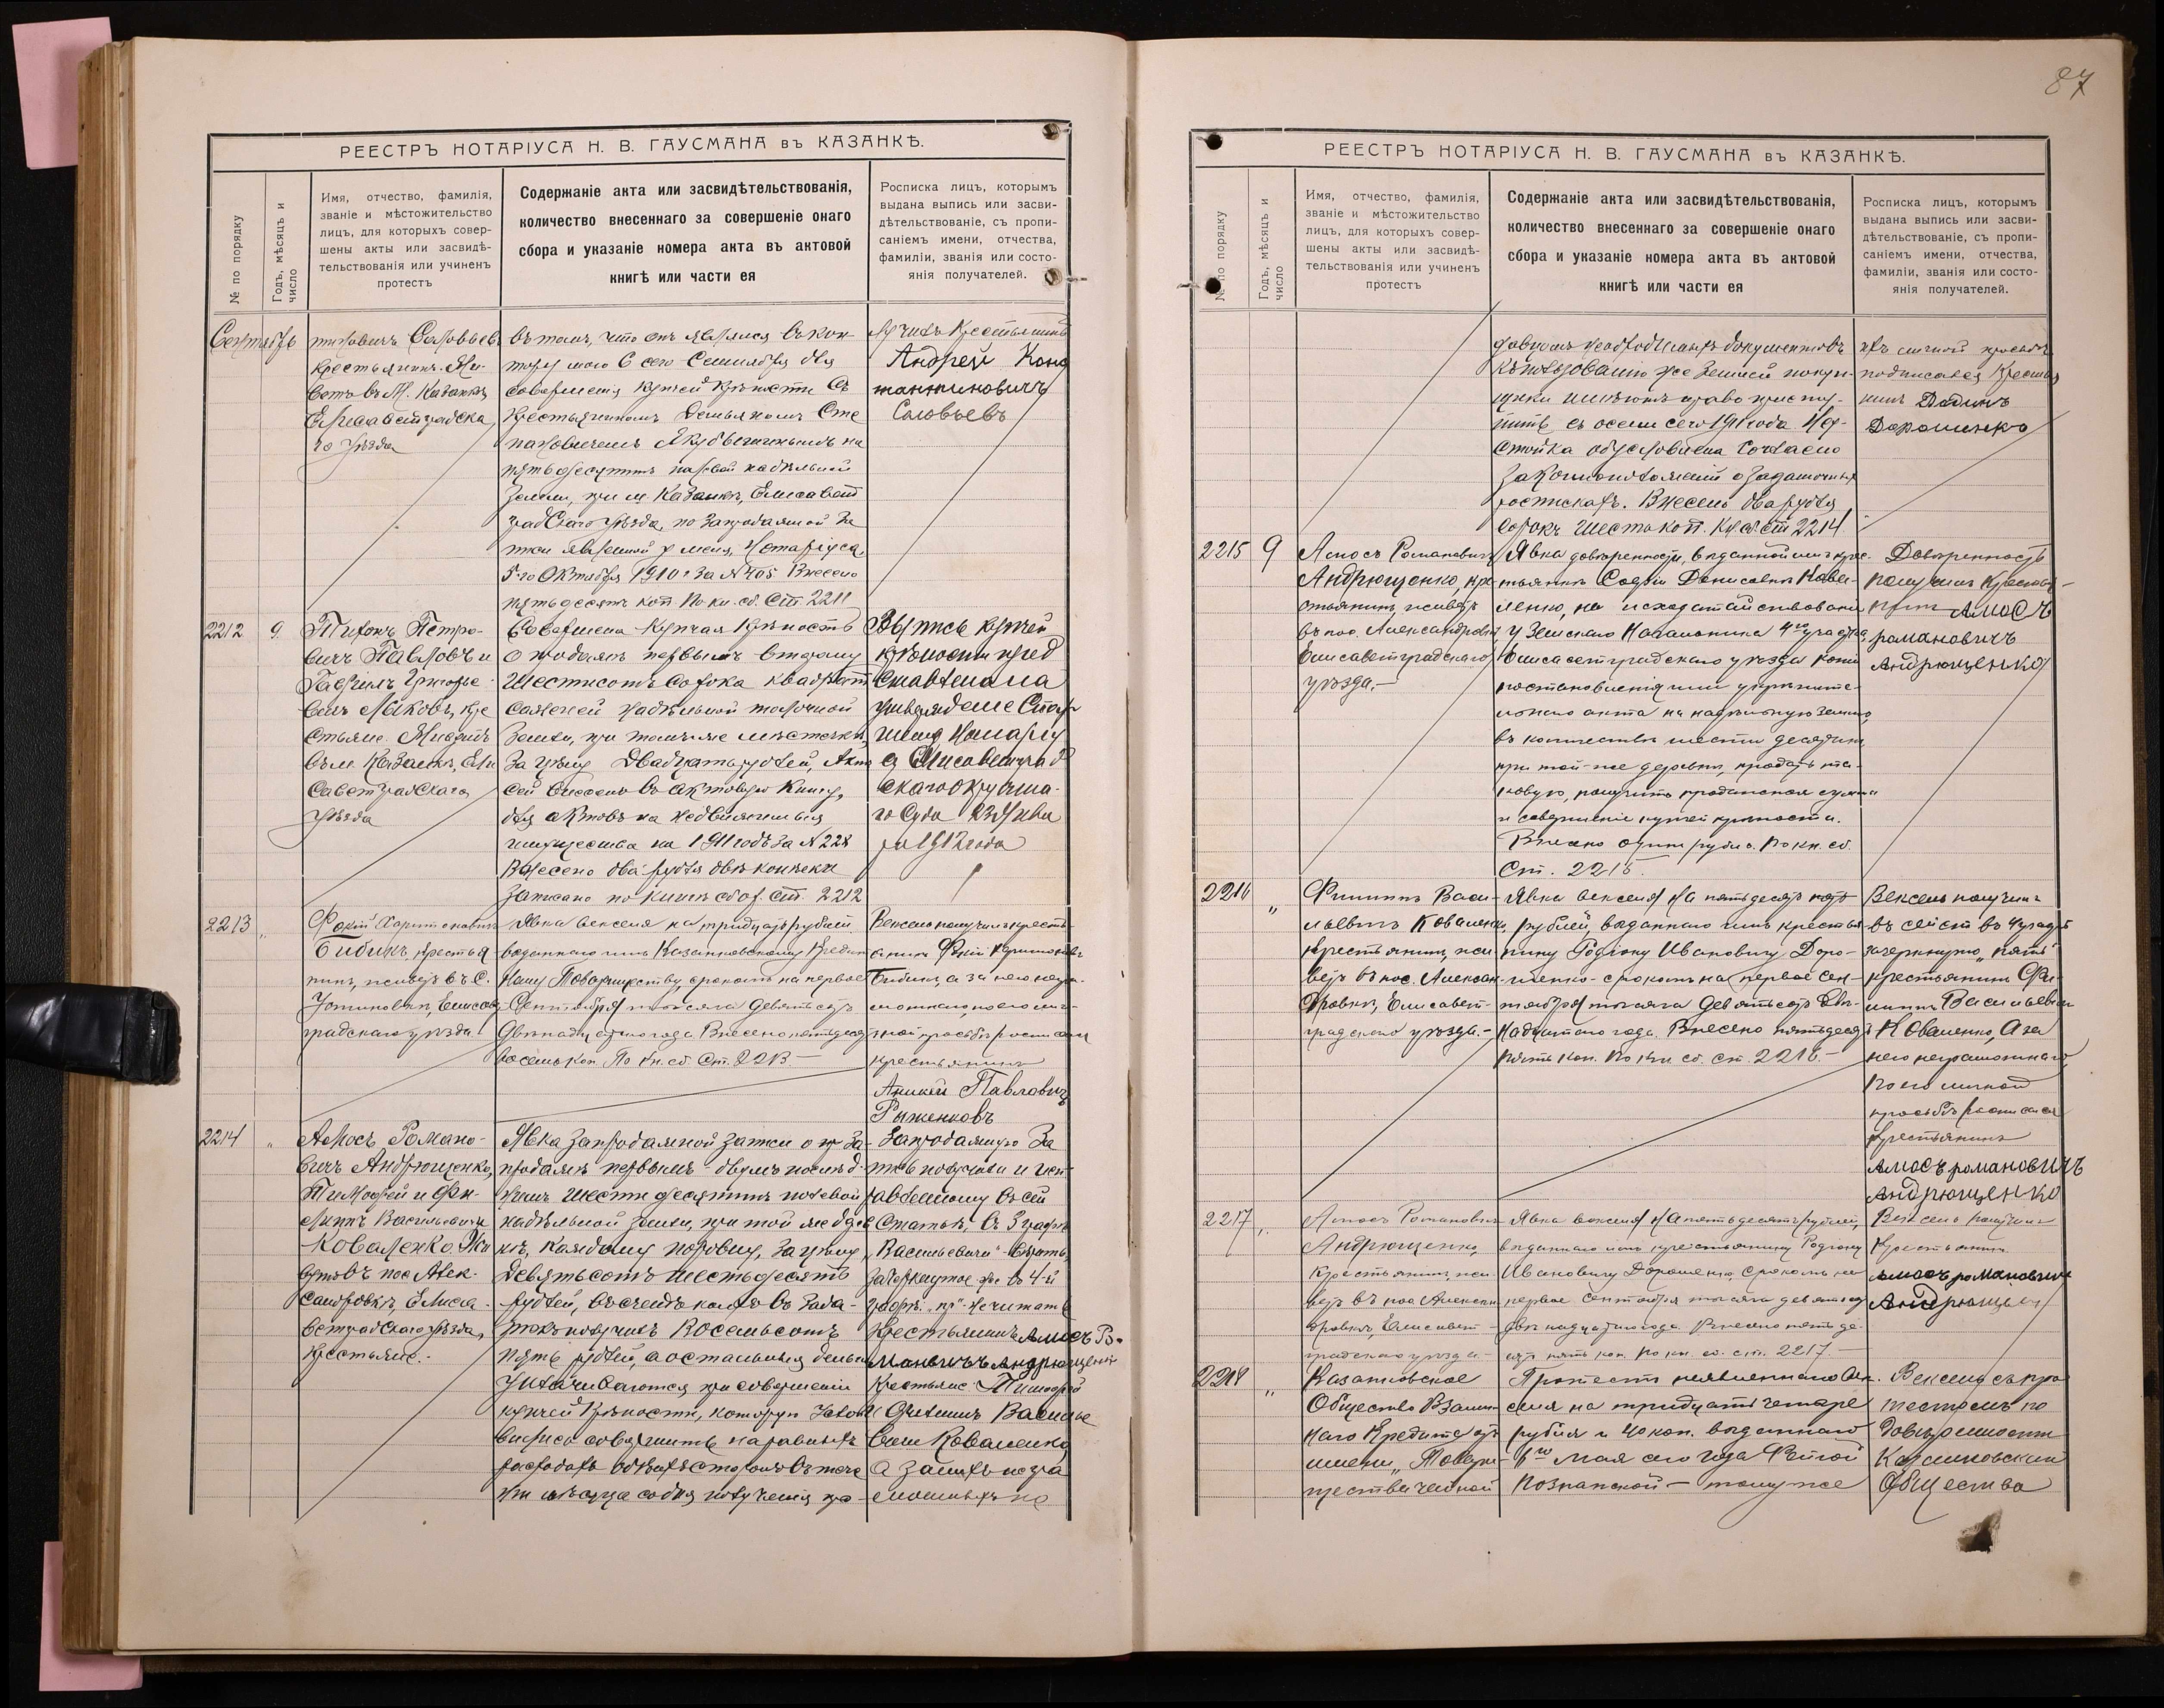 87
РЕЕСТРЪ НОТАРІУСА Н. В. ГАУСМАНА въ КАЗАНКѢ.
№ по порядку
Годъ, мѣсяцъ и число
Имя, отчество, фамилія,
званіе и мѣстожительство
лицъ, для которыхъ совер-
шены акты или засвидѣ-
тельствованія или учиненъ
протестъ
Содержаніе акта или засвидѣтельствованія,
количество внесеннаго за совершеніе онаго
сбора и указаніе номера акта въ актовой
книгѣ или части ея
Росписка лицъ, которымъ
выдана выпись или засви-
дѣтельствованіе, съ пропи-
саніемъ имени, отчества,
фамиліи, званія или состо-
янія получателей.
Сентябрь
Соловьевъ
крестьянинъ. Жи-
ветъ въ М. Казанкѣ
Елисаветградска
го уѣзда
въ томъ, что онъ являлся въ кон
тору мою 6 сего Сентября для
совершенія купчей крѣпости съ
крестьяниномъ Демьяномъ Сте
пановичемъ на
пять десятинъ надѣльной
земли, при м. Казанкѣ, Елисавет
градскаго уѣзда, по запродажной За
писи явленной у меня, Нотаріуса,
5-го Октября 1910 г за № 405 Внесено
пятьдесятъ коп. По кн. сб. Ст. 2211
Крестьянинъ
Андрей Конс
тантиновичъ
Соловьевъ
2212
9.
Тихонъ Петро-
вичъ Павловъ и
Гаврiилъ Григорье-
вичъ Лыковъ, кре
стьяне. Живутъ
въ м. Казанкѣ, Ели
саветградскаго
уѣзда
Совершена Купчая Крѣпость
о продажѣ первымъ второму
Шестисотъ сорока квадрат
саженей надѣльной
земли, при томъ-же мѣстечкѣ,
за цѣну Двадцать рублей, Актъ
сей внесенъ въ актовую Книгу,
для актовъ на недвижимыя
имущества на 1911 годъ за № 228
Внесено два рубля двѣ копѣйки
Записано по книгѣ сбор. ст. 2212
Выпись купчей
крѣпости пред
ставлена на
утвержденіе Стар
шему Нотаріу
са Елисаветград
скаго Окружна-
го Суда 23 Янва
ря 1912 года
2213
"
Фокій Харитоновичъ
Бибикъ, крестья
нинъ, живетъ въ с.
Елисавет
градскаго уѣзда
Явка векселя на тридцать рублей
выданнаго имъ Казанковскому Кредит
ному Товариществу, срокомъ на первое
Сентября тысяча девятьсотъ
двѣнадцатаго года. Внесено пятьдесятъ
восемь коп. По кн. сб. Ст. 2213.-
Вексель получилъ кресть
янинъ Фокій Харитоновичъ
Бибикъ, а за него негра-
мотнаго, по его лич-
ной просьбѣ росписался
крестьянинъ
Аникей Павловичъ
Рыженковъ
2214
"
Амосъ Романо-
вичъ Андрющенко,
Тимофей и Фи-
липпъ Васильевичи
Коваленко. Жи
вутъ въ пос Алек-
сандровкѣ, Елиса-
ветградскаго уѣзда,
крестьяне.
Явка запродажной записи о
продажѣ первымъ двумъ послѣд-
нимъ шести десятинъ полевой
надѣльной земли, при той же дерев
нѣ, каждому поровну, за цѣну
Девятьсотъ шестьдесятъ
рублей, въ счетъ коихъ въ зада-
токъ получилъ восемьсотъ
пять рублей, а остальныя деньги
уплачиваются при совершеніи
купчей крѣпости, которую
вились совершить на равныхъ
расходахъ обѣихъ сторонъ въ тече
ніи мѣсяца со дня полученія про-
Запродажную За
пись получили и
въ сей
статьѣ, въ 3 графѣ
"Васильевичи" вѣрить,
зачеркнутое же въ 4-й
графѣ "пр" не читать
Крестьянинъ Амосъ Ро-
мановичъ Андрющенко
Крестьяне Тимофей
и Филиппъ Василье
вичи Коваленко
а за нихъ негра
мотныхъ по
РЕЕСТРЪ НОТАРІУСА Н. В. ГАУСМАНА въ КАЗАНКѢ.
№ по порядку
Годъ, мѣсяцъ и число
Имя, отчество, фамилія,
званіе и мѣстожительство
лицъ, для которыхъ совер-
шены акты или засвидѣ-
тельствованія или учиненъ
протестъ
Содержаніе акта или засвидѣтельствованія,
количество внесеннаго за совершеніе онаго
сбора и указаніе номера акта въ актовой
книгѣ или части ея
Росписка лицъ, которымъ
выдана выпись или засви-
дѣтельствованіе, съ пропи-
саніемъ имени, отчества,
фамиліи, званія или состо-
янія получателей.
давцомъ необходимыхъ документовъ
Къ пользованію же землей покуп-
щики имѣютъ право присту-
пить съ осени сего 1911 года. Не-
стойка обусловлена согласно
законоположеній о задаточныхъ
роспискахъ. Внесено два рубля
сорокъ шесть коп. Кн. сб. Ст 2214
ихъ личной просьбѣ
подписался Крестья
нинъ
Дорошенко
2215
9
Амосъ Романовичъ
Андрющенко, кре
стьянинъ, живетъ
въ пос. Александровкѣ
Елисаветградскаго
уѣзда.-
Явка довѣренности, выданной имъ крес-
тьянкѣ Софіи Денисовнѣ Кова-
ленко, на исходатайствованіе
у Земскаго Начальника 4го участка,
Елисаветградскаго уѣзда копіи
постановленія или укрѣпите-
льнаго акта на надѣльную землю,
въ количествѣ шести десятинъ
при той-же деревнѣ, продать та-
ковую, получить продажную сумму
и совершеніе купчей крѣпости.
Внесено одинъ рубль. По кн. сб.
Ст. 2215.
Довѣренность
получилъ Крестья-
нинъ Амосъ
романовичъ
Андрющенко
2216
"
Филиппъ Васи-
льевичъ Коваленко,
Крестьянинъ, жи
ветъ въ пос. Алексан-
дровкѣ, Елисавет-
градскаго уѣзда.-
Явка векселя на пятьдесятъ
рублей, выданнаго имъ крестья
нину Родіону Ивановичу Доро-
шенко - срокомъ на первое Сен-
тября тысяча девятьсотъ двѣ-
надцатаго года. Внесено пятьдесятъ
пять коп. По кн сб. ст. 2216.-
Вексель получилъ
въ сей ст въ 4 графѣ
зачеркнуто "пять"
крестьянинъ Фи-
липпъ Васильевичъ
Коваленко, А за
него неграмотнаго,
по его личной
просьбѣ росписался
Крестьянинъ
Амосъ романовичъ
Андрющенко
2217
"
Амосъ Романовичъ
Андрющенко,
Крестьянинъ, жи
ветъ въ пос Алексан
дровкѣ, Елисавет-
градскаго уѣзда-
Явка векселя на пятьдесятъ рублей,
выданнаго имъ крестьянину Родіону
Ивановичу Дорошенко, срокомъ на
первое Сентября тысяча девятьсотъ
двѣнадцатаго года. Внесено пятьде-
сятъ пять коп. По кн. сб. ст. 2217.-
Вексель получилъ
Крестьянинъ
Амосъ романовичъ
Андрющенко
2218
"
Казанковское
Общество Взаим-
наго Кредита отъ
имени "Товари-
Протестъ неявленнаго век-
селя на тридцать четыре
рубля и 40 коп. выданнаго
1го мая сего года
Познанской - тому же
Вексель съ про
тестомъ по
довѣренности
Казанковскаго
Общества